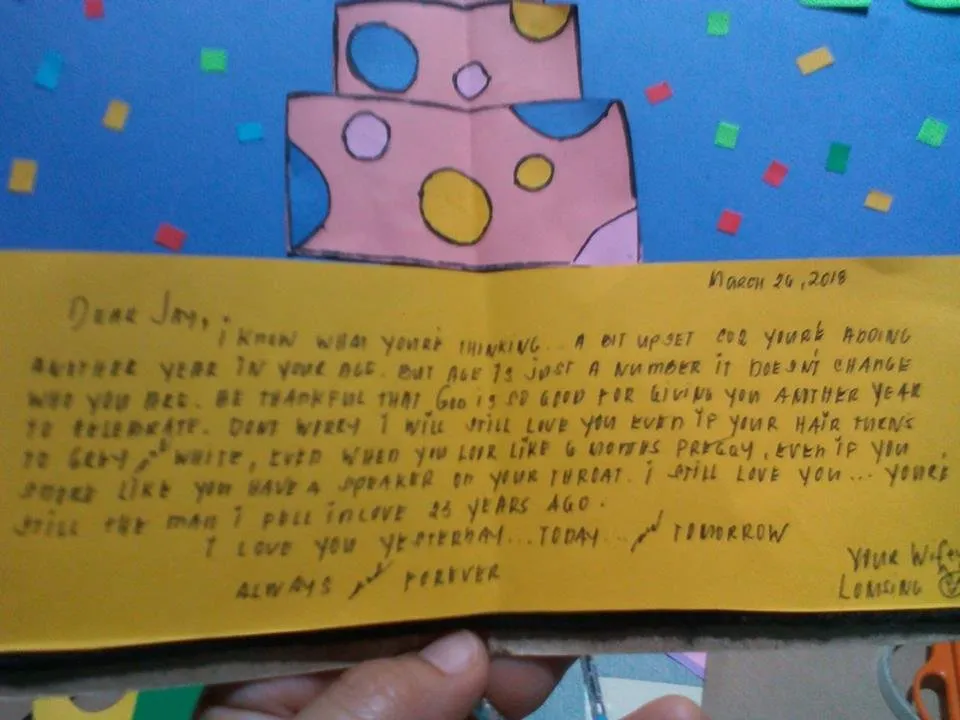 March 26, 2018
DEAR JAY,
I KNOW WHAT YOU'RE THINKING... A BIT UPSET COZ YOU'RE ADDING
ANOTHER YEAR IN YOUR AGE. BUT AGE IS JUST A NUMBER IT DOESN'T CHANGE
WHO YOU ARE. BE THANKFUL THAT GOD IS SO GOOD FOR GIVING YOU ANOTHER YEAR
TO CELEBRATE. DONT WORRY I WILL STILL LOVE YOU EVEN IF YOUR HAIR TURNS
TO GREY and WHITE, EVEN WHEN YOU LOOK LIKE 6 MONTHS PREGGY, EVEN IF YOU
SNORE LIKE YOU HAVE A SPEAKER ON YOUR THROAT. I STILL LOVE YOU... YOU'RE
STILL THE MAN I FELL INLOVE 23 YEARS AGO.
I LOVE YOU YESTERDAY... TODAY... and TOMORROW
ALWAYS and FOREVER
YOUR Wifey
LOMSING